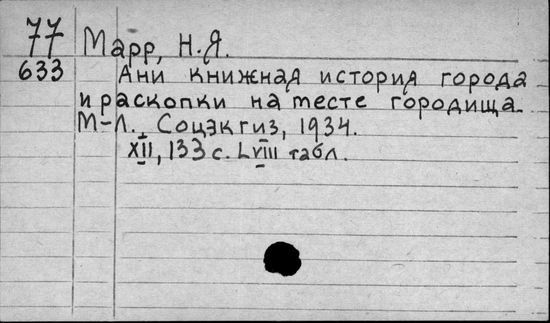 77 Марр, Н.Я.
633 Ани книжная история города
и раскопки на месте городища.
М-Л. Соцэкгиз, 1934.
XII, 133 с. LVIII табл.